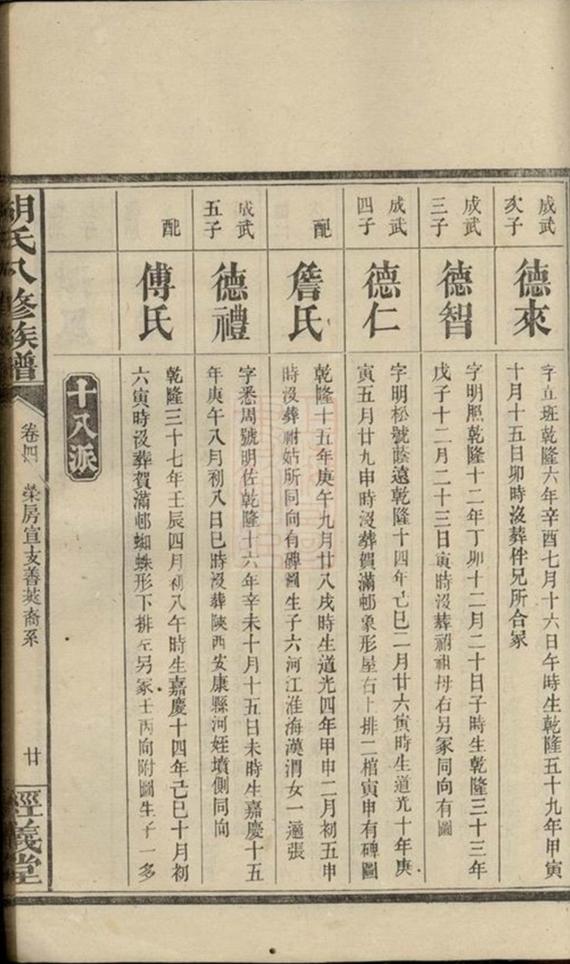 成武
次子
德來
字立班乾隆六年辛酉七月十六日午時生乾隆五十九年甲寅
十月十五日卯時沒葬伴兄所合冢
成武
三子
德智
字明照乾隆十二年丁卯十二月二十日子時生乾隆三十三年
戊子十二月二十三日寅時沒葬祔祖母右另冢同向有圖
成武
四子
德仁
字明松號蔭遠乾隆十四年己巳二月廿六寅時生道光十年庚
寅五月廿九申時沒葬賀滿邨象形屋右上排二棺寅申有碑圖
配
詹氏
乾隆十五年庚午九月廿八戌時生道光四年甲申二月初五申
時沒葬祔姑所同向有碑圖生子六河江淮海漢渭女一適張
成武
五子
德禮
字悉周號明佐乾隆十六年辛未十月十五日未時生嘉慶十五
年庚午八月初八日巳時沒葬陝西安康縣河姪墳側同向
配
傅氏
乾隆三十七年壬辰四月初八午時生嘉慶十四年己巳十月初
六寅時沒葬賀滿邨蜘蛛形下排左另冢壬丙向附圖生子一多
十八派
胡氏八修族譜
卷四
榮房宣支善英裔系
廿
經義堂